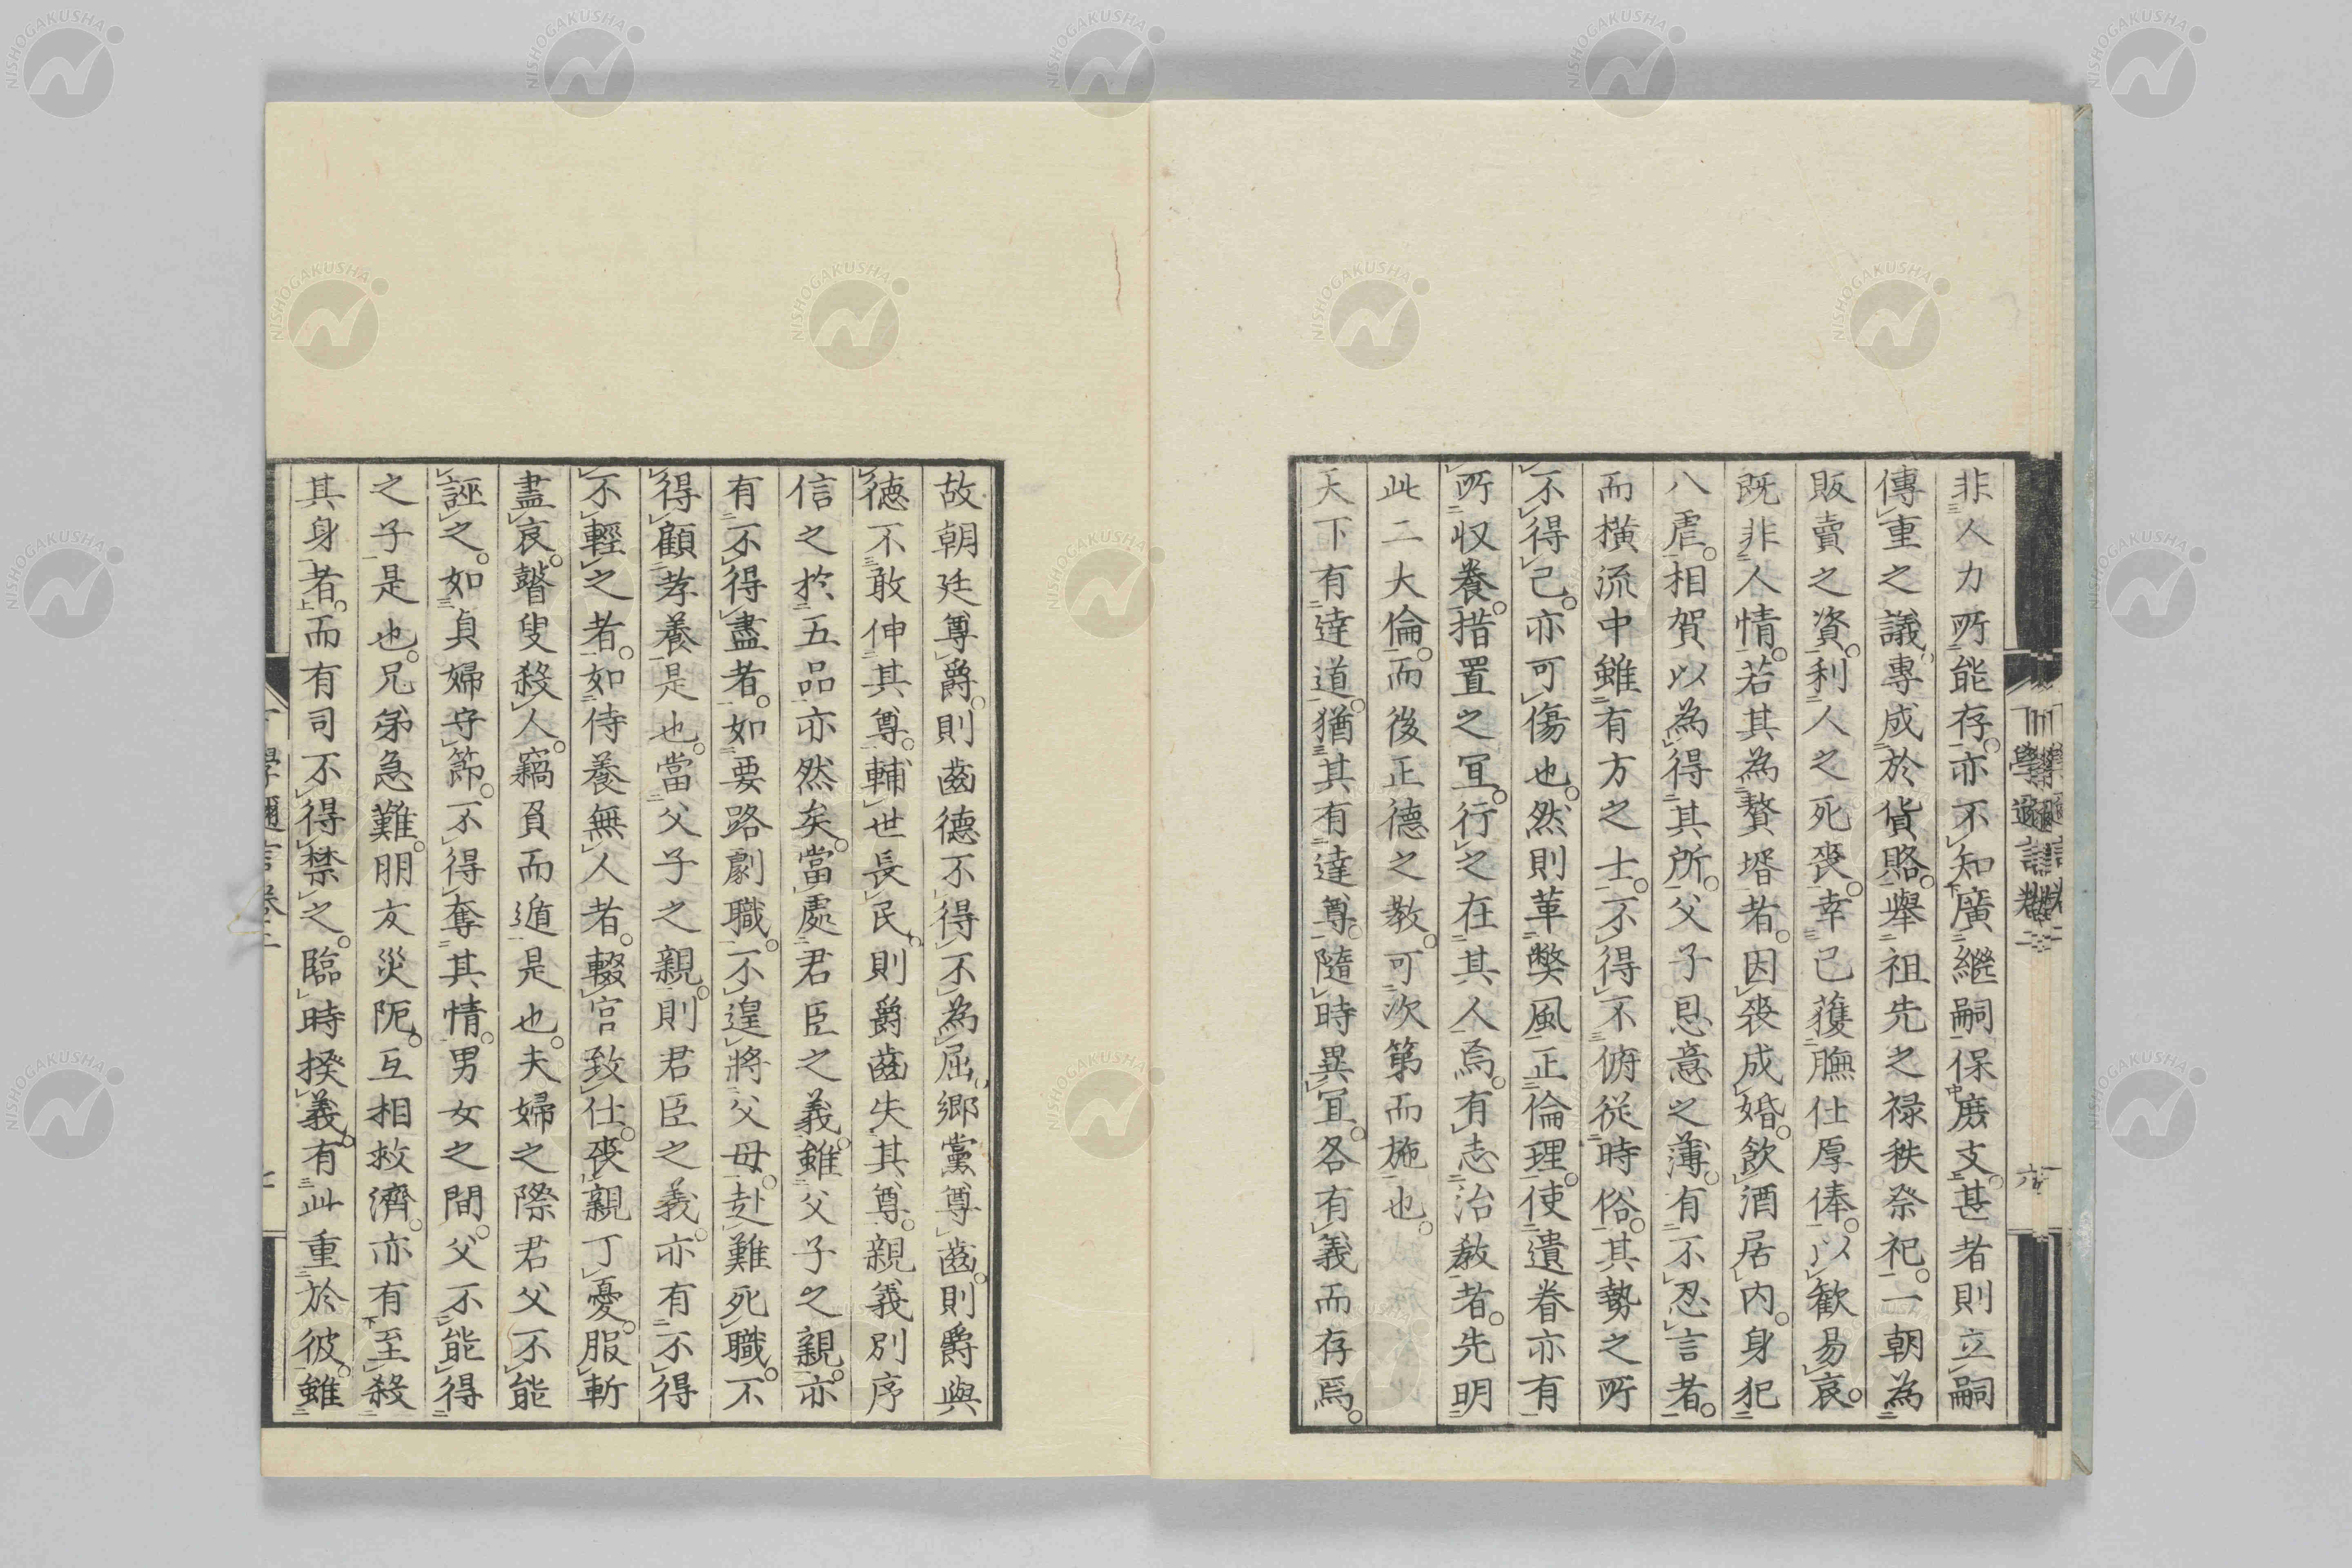 非人力所能存亦不知廣繼嗣保庶支甚者則立嗣
傳重之議專成於貨賂舉祖先之禄秩祭祀一朝為
販賣之資利人之死喪幸己獲膴仕厚俸以歓易哀
既非人情若其為贅壻者因喪成婚飲酒居内身犯
八虐相賀以為得其所父子恩意之薄有不忍言者
而横流中雖有方之士不得不俯従時俗其勢之所
不得已亦可傷也然則革弊風正倫理使遺眷亦有
所収養措置之冝行之在其人焉有志治教者先明
此二大倫而後正德之教可次第而施也
天下有達道猶其有達尊隨時異冝各有義而存焉
故朝廷尊爵則齒德不得不為屈郷黨尊齒則爵與
德不敢伸其尊輔世長民則爵齒失其尊親義別序
信之於五品亦然矣當處君臣之義雖父子之親亦
有不得盡者如要路劇職不遑將父母赴難死職不
得顧孝養是也當父子之親則君臣之義亦有不得
不輕之者如侍養無人者輟官致仕喪親丁憂服斬
盡哀瞽叟殺人竊負而遁是也夫婦之際君父不能
誣之如貞婦守節不得奪其情男女之間父不能得
之子是也兄弟急難朋友災阨互相救濟亦有至殺
其身者而有司不得禁之臨時揆義有此重於彼雖
六
NISHOGAKUSHA